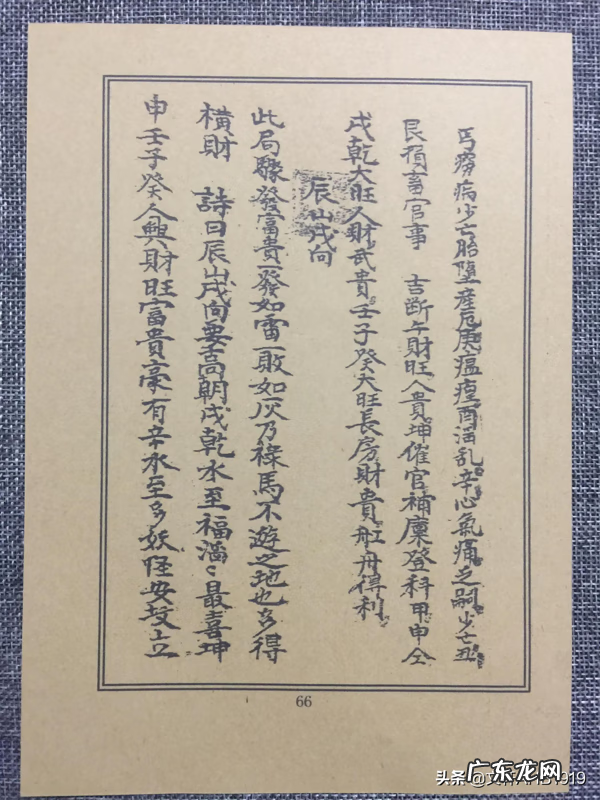 丐癆病少亡胎墮產厄庚瘟痘酉淫乱辛心氣痛乏嗣少亡丑
艮損畜官事 吉断午財旺人貴坤催官補廩登科甲申仝
戌乾大旺人財武貴壬子癸大旺長房財貴舡舟得利
辰山戌向
此局驟發富貴一發如雷一敗如灰乃祿馬不遊之地也多得
橫財 詩曰辰山戌向要高朝戌乾水至福滿〻最喜坤
申壬子癸人興財旺富貴豪有辛水至多妖怪安坟立
66
广东龙网